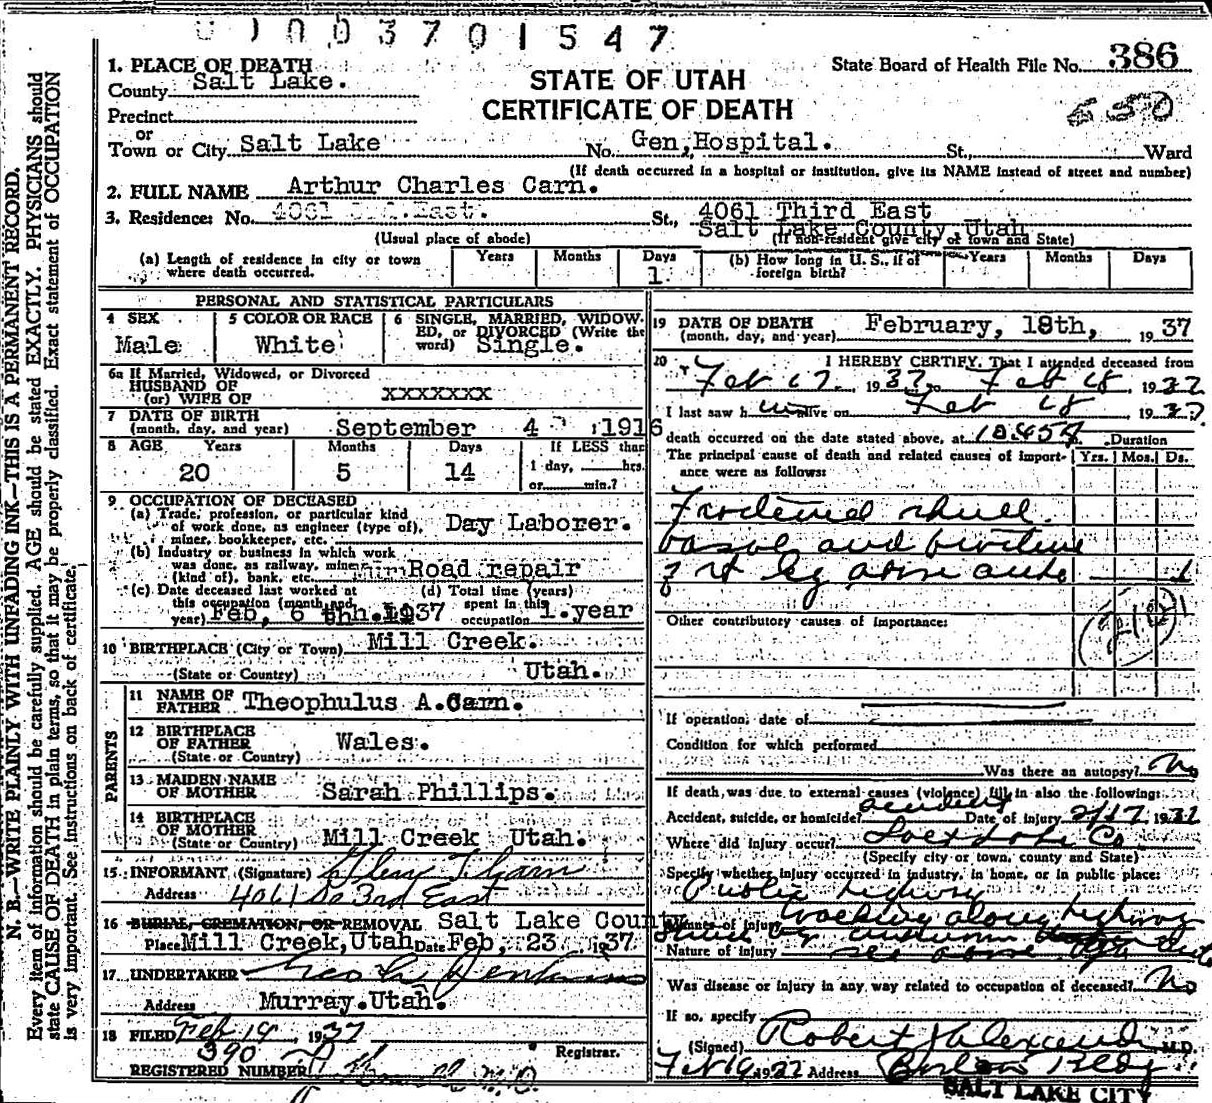 1003701547
1. PLACE OF DEATH
County Salt Lake.
STATE OF UTAH
CERTIFICATE OF DEATH
State Board of Health File No. 386
Precinct
or
Town or City Salt Lake No. Gen, Hospital. St., Ward
(If death occurred in a hospital or institution, give its NAME instead of street and number)
2. FULL NAME Arthur Charles Carn.
3. Residence: No. 4061 3rd. East. St., 4061 Third East
Salt Lake County Utah
(Usual place of abode) (If non-resident give city or town and State)
(a) Length of residence in city or town where death occurred. Years Months Days 1
(b) How long in U. S., if of foreign birth? Years Months Days
PERSONAL AND STATISTICAL PARTICULARS
4 SEX Male
5 COLOR OR RACE White
6 SINGLE, MARRIED, WIDOWED, or DIVORCED (Write the word) Single.
6a If Married, Widowed, or Divorced
HUSBAND OF
(or) WIFE OF xxxxxxx
7 DATE OF BIRTH
(month, day, and year) September 4 1916
8 AGE Years 20 Months 5 Days 14 If LESS than 1 day, hrs. or min.?
9 OCCUPATION OF DECEASED
(a) Trade, profession, or particular kind of work done, as engineer (type of), miner, bookkeeper, etc. Day Laborer.
(b) Industry or business in which work was done, as railway, mine (kind of), bank, etc. Road repair
(c) Date deceased last worked at this occupation (month and year) Feb, 6 th. 1937
(d) Total time (years) spent in this occupation 1.year
10 BIRTHPLACE (City or Town) Mill Creek.
(State or Country) Utah.
PARENTS
11 NAME OF FATHER Theophulus A.Carn.
12 BIRTHPLACE OF FATHER Wales.
(State or Country)
13 MAIDEN NAME OF MOTHER Sarah Phillips.
14 BIRTHPLACE OF MOTHER
(State or Country) Mill Creek Utah.
15 INFORMANT (Signature) Carn
Address 4061 So 3rd East
16 BURIAL, CREMATION, OR REMOVAL Salt Lake County
Place Mill Creek, Utah Date Feb, 23 1937
17 UNDERTAKER
Address Murray.Utah.
18 FILED Feb 19, 1937
390 Registrar.
REGISTERED NUMBER
19 DATE OF DEATH
(month, day, and year) February, 18th, 1937
20 I HEREBY CERTIFY, That I attended deceased from
Feb 17 1937 to Feb 18 1937
I last saw him alive on Feb 18 1937
death occurred on the date stated above, at 10.45 Duration
The principal cause of death and related causes of importance were as follows: Yrs. Mos. Ds.
Fractured skull
basal and fracture
of rt leg above
Other contributory causes of importance:
210
If operation, date of
Condition for which performed
Was there an autopsy? No
If death was due to external causes (violence) fill in also the following:
Accident, suicide, or homicide? accident Date of injury 2/17 1937
Where did injury occur? Salt Lake Co
(Specify city or town, county and State)
Specify whether injury occurred in industry, in home, or in public place:
Public highway
Manner of injury walking along highway
Nature of injury see above
Was disease or injury in any way related to occupation of deceased? No
If so, specify
(Signed) Robert Alexander M.D.
Feb 19 1937 Address Bldg
SALT LAKE CITY
N. B.—WRITE PLAINLY WITH UNFADING INK—THIS IS A PERMANENT RECORD.
Every item of information should be carefully supplied. AGE should be stated EXACTLY. PHYSICIANS should
state CAUSE OF DEATH in plain terms, so that it may be properly classified. Exact statement of OCCUPATION
is very important. See instructions on back of certificate.